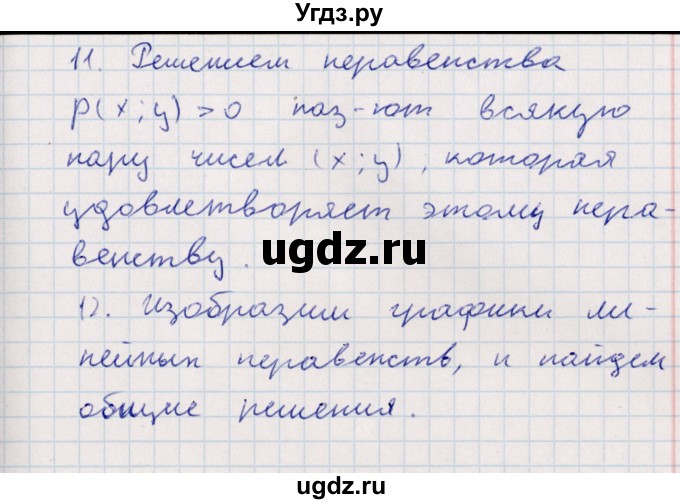 Угдз.ру
11. Решением неравенства
p(x;y)>0 наз-ют всякую
пару чисел (x;y), которая
удовлетворяет этому нера-
венству.
12. Изобразим графики ли-
нейных неравенств, и найдем
общие решения.
ugdz.ru
ugdz.ru
ugdz.ru